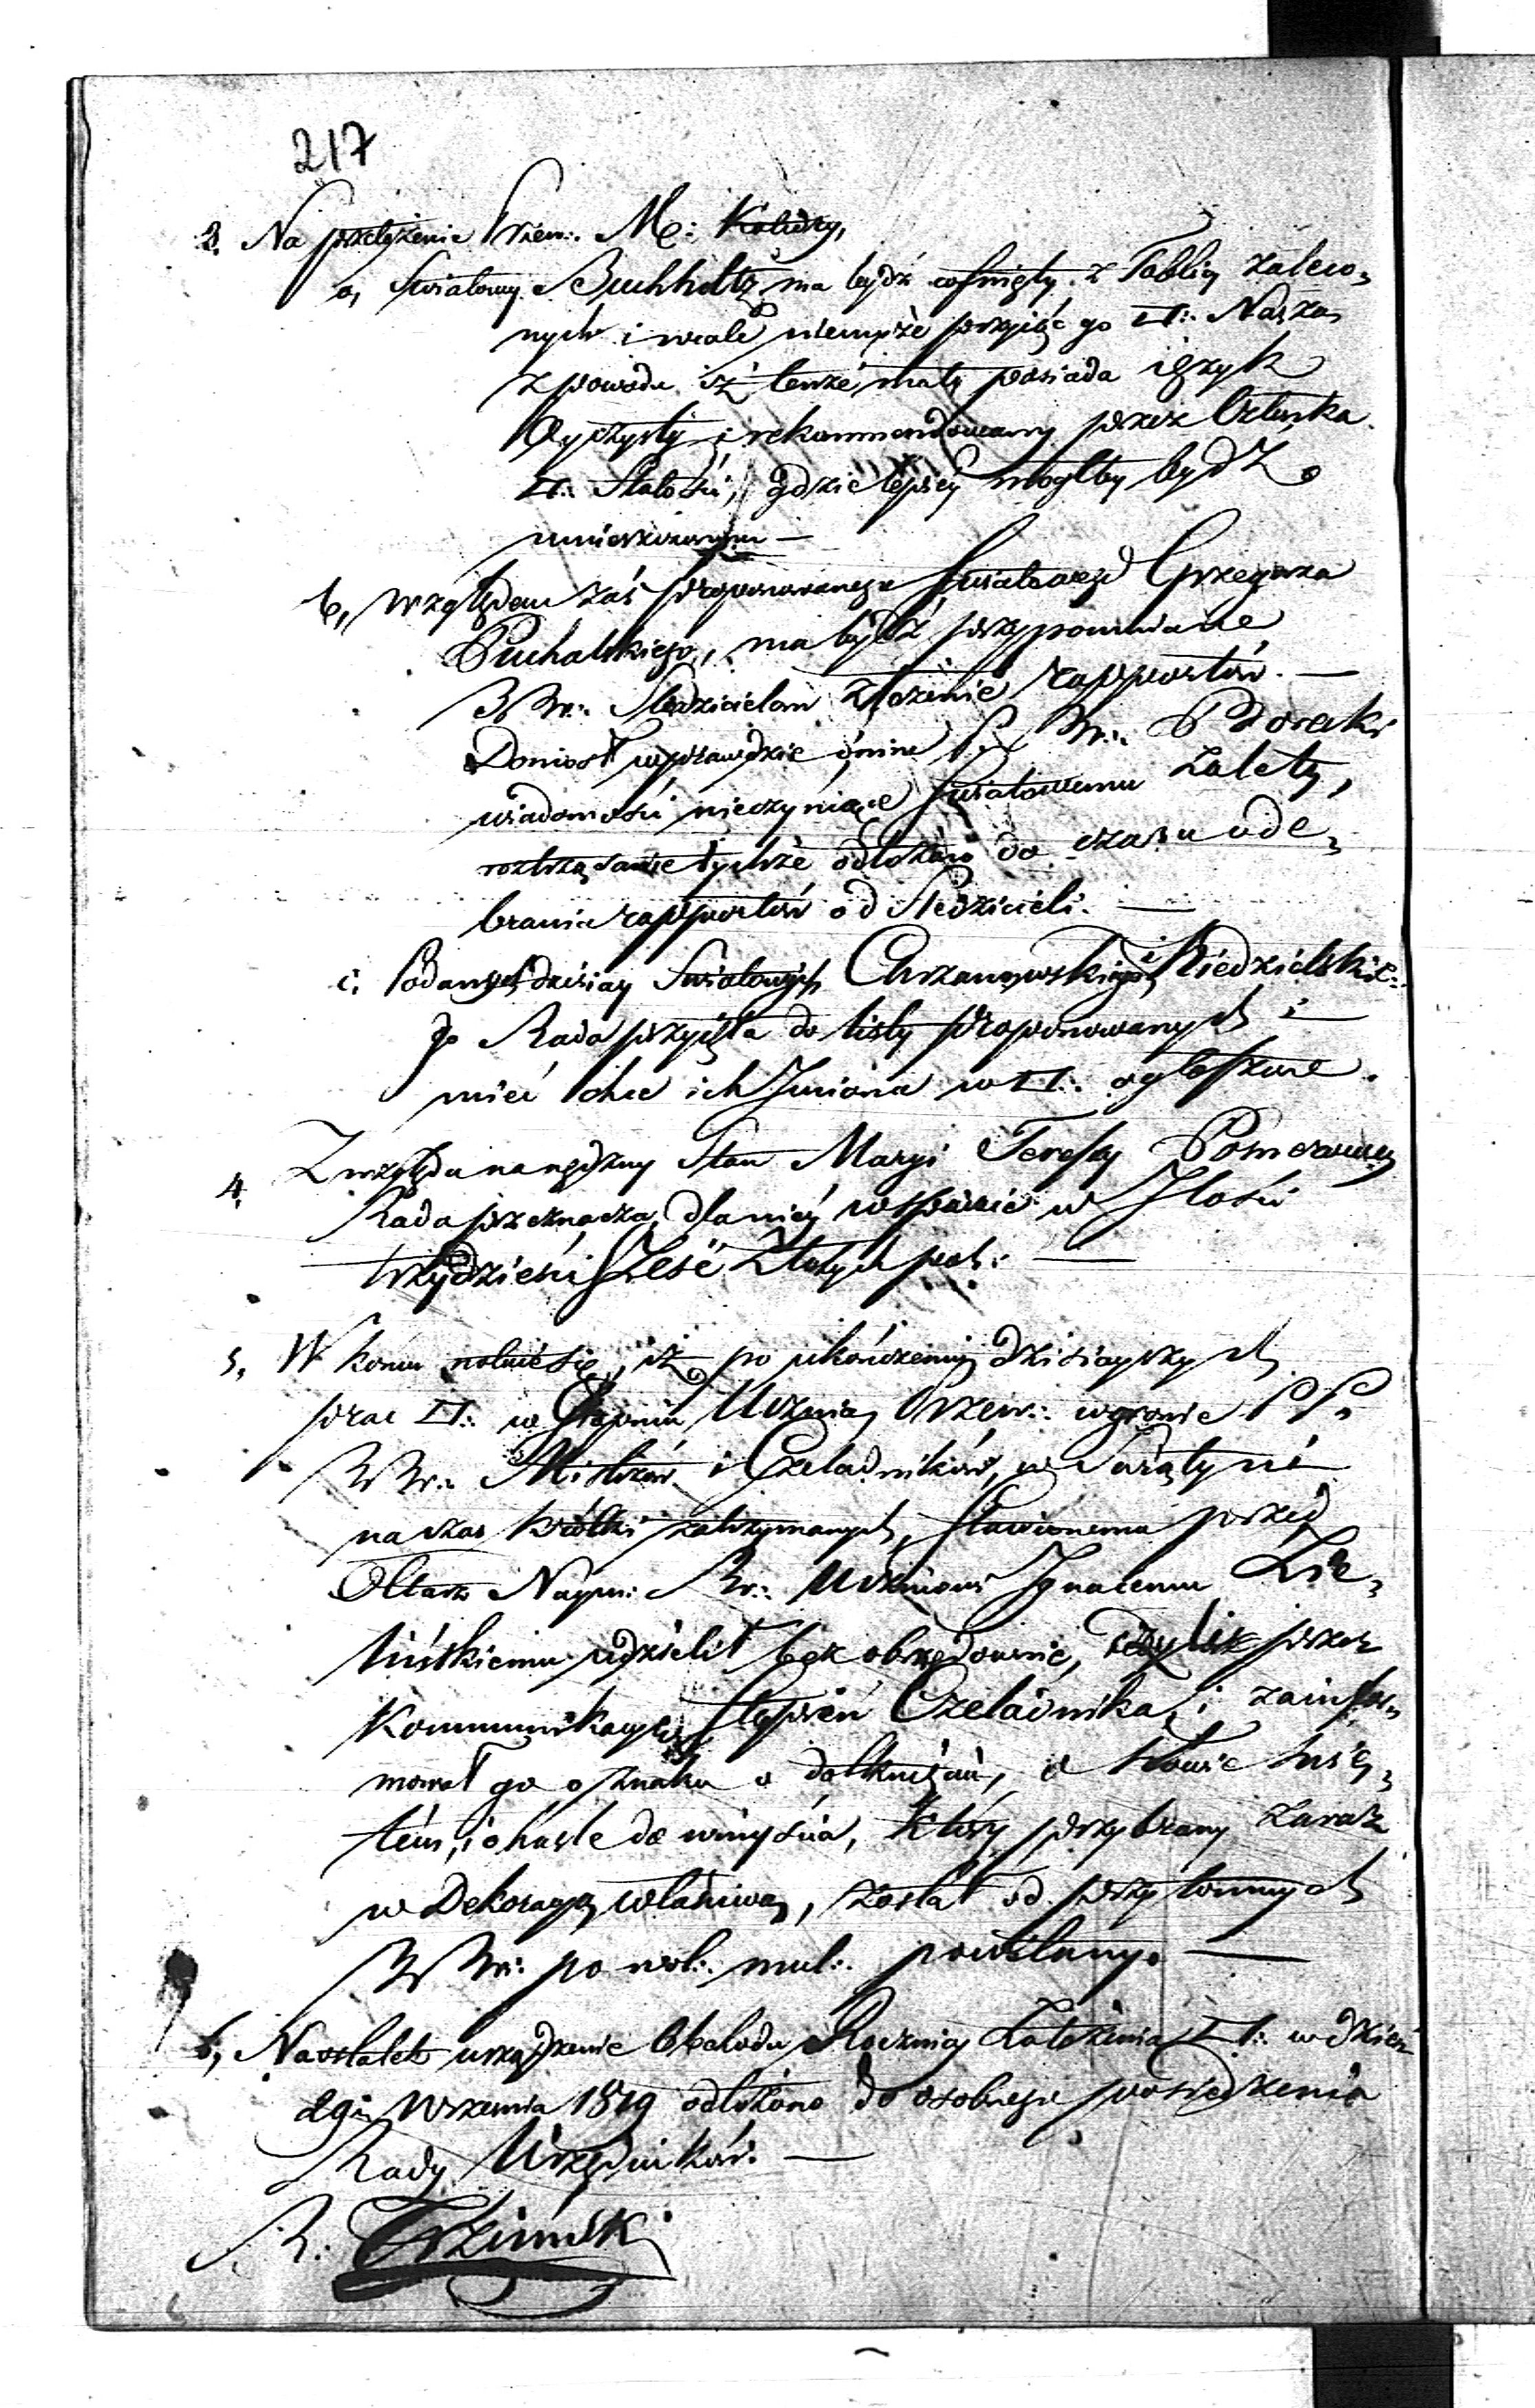 217
3. Na przełożenie Przew:. M: Katedry,
a, Swiatowy Buchholtz ma bydź cofnięty z Tablicy zaleco,
nych i wcale niemoże przyjąć go □:. Nasza,
z powodu iż tenże mało posiada ięzyk
Oyczysty i rekommendowany przez Członka
□:. Stałości, gdzie lepiéy mogłby bydź
umieszczonym —
b, względem zaś proponowanego Swiatowego Grzegorza
Puchalskiego, ma bydź przypomniane
BBr:. Sledzicielom złożenie rapportów. —
Doniosł wprawdzie ninie Br:.
wiadomości nieczyniące Swiatowemu zalety,
roztrząsanie tychże odłożono do czasu ode,
brania rapportów od Sledzicieli. —
c. Podanych dzisiay Swiatowych Chrzanowskiego i Niedzielskie:
go Rada przyięła do listy proponowanych i
mieć chce ich Imiona w □:. ogłoszone.
4. Z względu na nędzny Stan Maryi Teressy
Rada przeznacza dla niéy wsparcie w Ilości
trzydzieści sześć Złotych pol: —
5, W końcu notuie się, iż po ukończeniu dzisiayszych
prac □:. w Stopniu Ucznia, Przew:. w gronie PP.
BBr:. Mistrzów i Czeladników, w Swiątyni
na czas krótki zatrzymanych, stawionemu przed
Ołtarz Nayw: Br:. Uczniowi Ignacemu Lie,
tińskiemu udzielił bez obrzędownie, tylko przez
Kommunikacyą Stopień Czeladnika, i zainfor,
mował go o znaku o dotknięciu, o słowie świę,
tém, i o haśle do wniyścia, który przybrany zaraz
w Dekoracyą właściwą, został od przytomnych
BBr:. po wol:. mul:. powitany. —
6, Naostatek urządzenie Obchodu Rocznicy Założenia □:. w dzień
29: Września 1819 odłożono do osobnego posiedzenia
Rady Urzędników. —
R: Trzciński